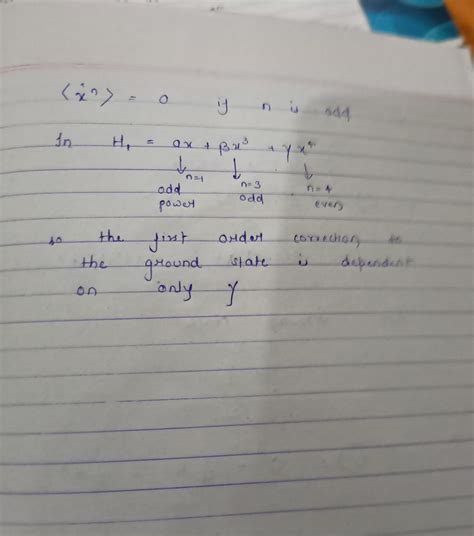 ⟨x̂ⁿ⟩ = 0 if n is odd
In H₁ = ax + βx³ + γx⁴
n=1 n=3 n=4
odd odd even
power
so the first order correction to
the ground state is dependent
on only γ